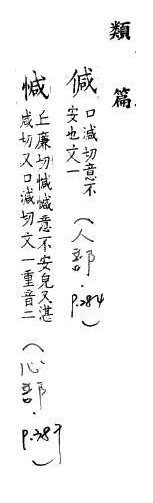 類篇
㑘 口減切意不
安也文一 (人部.
p.284)
㦑 丘廉切㦑㦑意不安皃又湛
咸切又口減切文一重音二 (心部.
p.387)